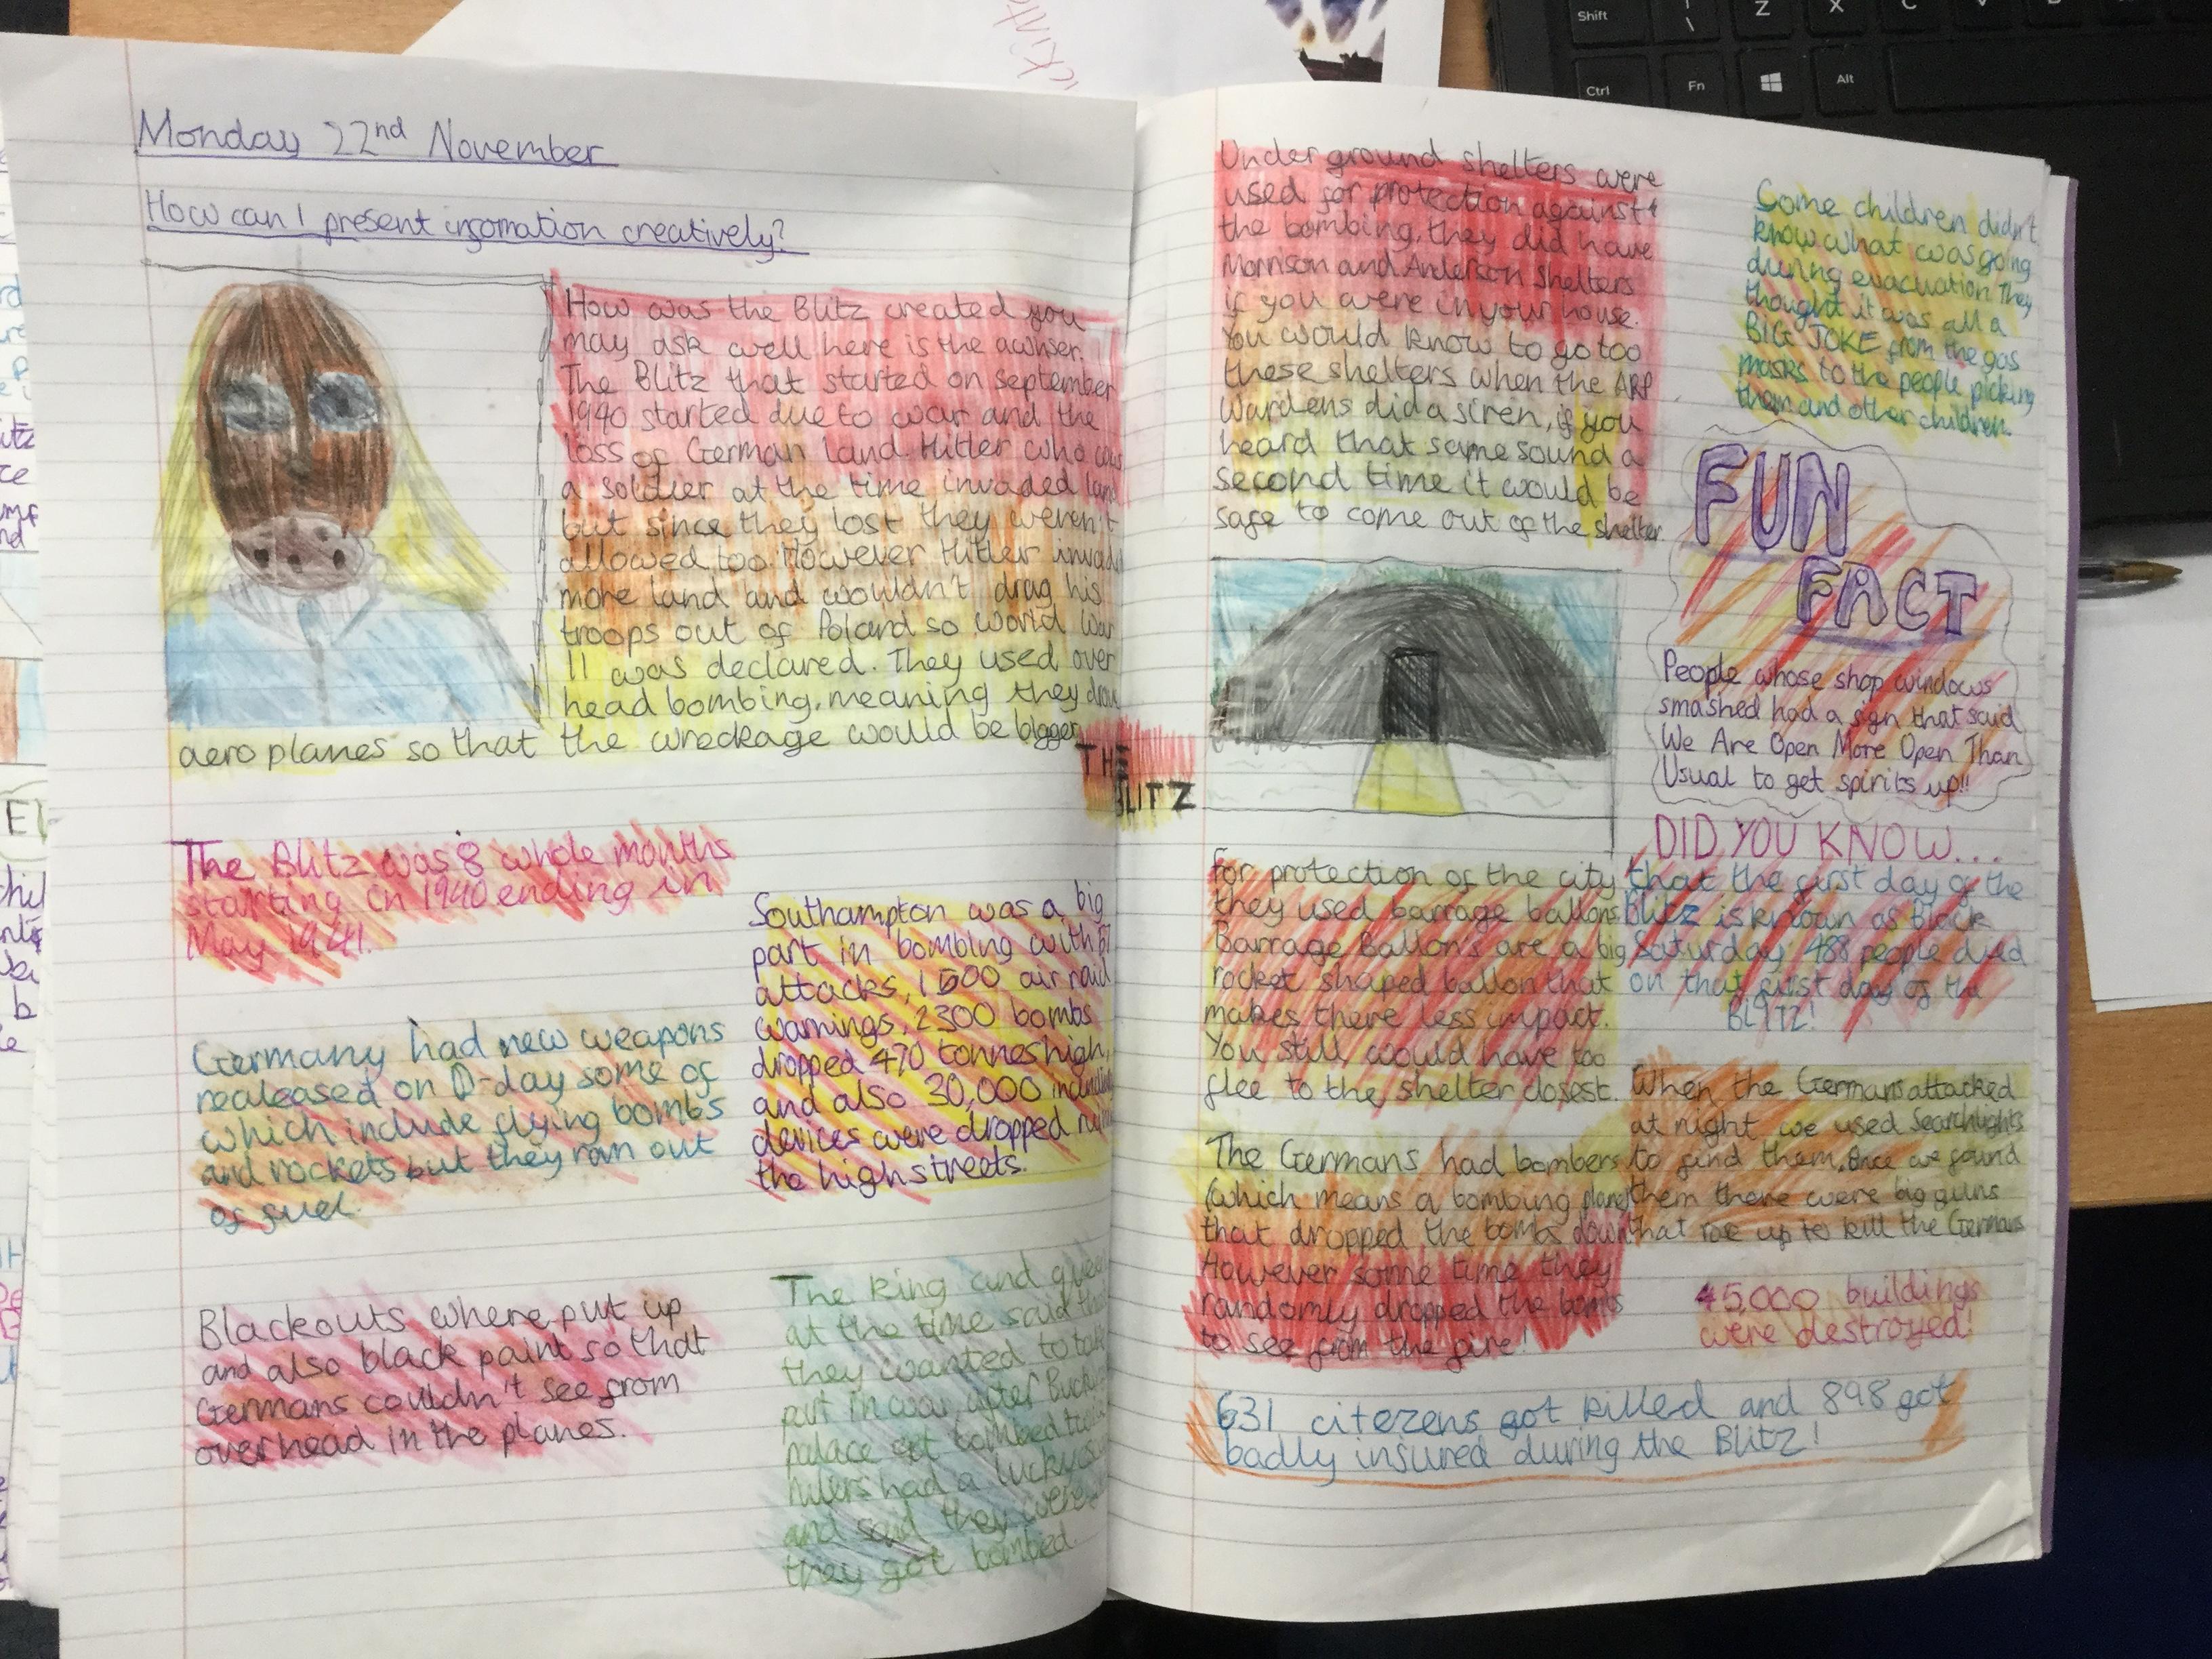 Monday 22nd November
How can I present ingomation creatively?
How was the Blitz created you
may ask well here is the awhser.
The Blitz that started on september
1940 started due to war and the
loss of German land. Hitler who was
a soldier at the time invaded land
but since they lost they weren't
allowed too. However Hitler invads
more land and wouldn't drag his
troops out of Poland so world War
11 was declared. They used over
head bombing, meaning they drove
aeroplanes so that the wreckage would be bigger
THE
BLITZ
The Blitz was 8 whole months
starting in 1940 ending in
May 1941.
Germany had new weapons
realeased on D-day some of
which include flying bombs
and rockets but they ran out
of fuel.
Blackouts where put up
and also black paint so that
Germans couldn't see from
overhead in the planes.
Southampton was a big
part in bombing with 57
attacks, 1500 air raid
warnings, 2300 bombs
dropped 470 tonnes high,
and also 30,000
devices were dropped
the high streets.
The King and
at the time said
they wanted to
part in war after
palace got bombed
rulers had a lucky
and said they were
they got bombed.
Underground shelters were
used for protection against
the bombing, they did have
Morrison and Anderson Shelters
if you were in your house.
You would know to go too
these shelters when the ARP
Wardens did a siren, if you
heard that same sound a
second time it would be
safe to come out of the shelter.
for protection of the city
they used barrage ballons.
Barrage Ballon's are a big
rocket shaped ballon that
makes there less impact.
You still would have too
flee to the shelter closest.
The Germans had bombers
(which means a bombing plane)
that dropped the bombs down
However some time they
randomly dropped the bombs
to see from the fire!
Some children didn't
know what was going
during evacuation. They
thought it was all a
BIG JOKE from the gas
masks to the people picking
them and other children.
FUN
FACT
People whose shop windows
smashed had a sign that said
We Are Open More Open Than
Usual to get spirits up!!
DID YOU KNOW...
that the first day of the
Blitz is known as Black
Saturday 488 people died
on that first day of the
BLITZ!
When the Germans attacked
at night we used Searchlights
to find them. Once we found
them there were big guns
that rose up to kill the Germans
45,000 buildings
were destroyed!
631 citezens got killed and 898 got
badly insured during the Blitz!
Shift
\
Z
X
C
V
B
Ctrl
Fn
Alt